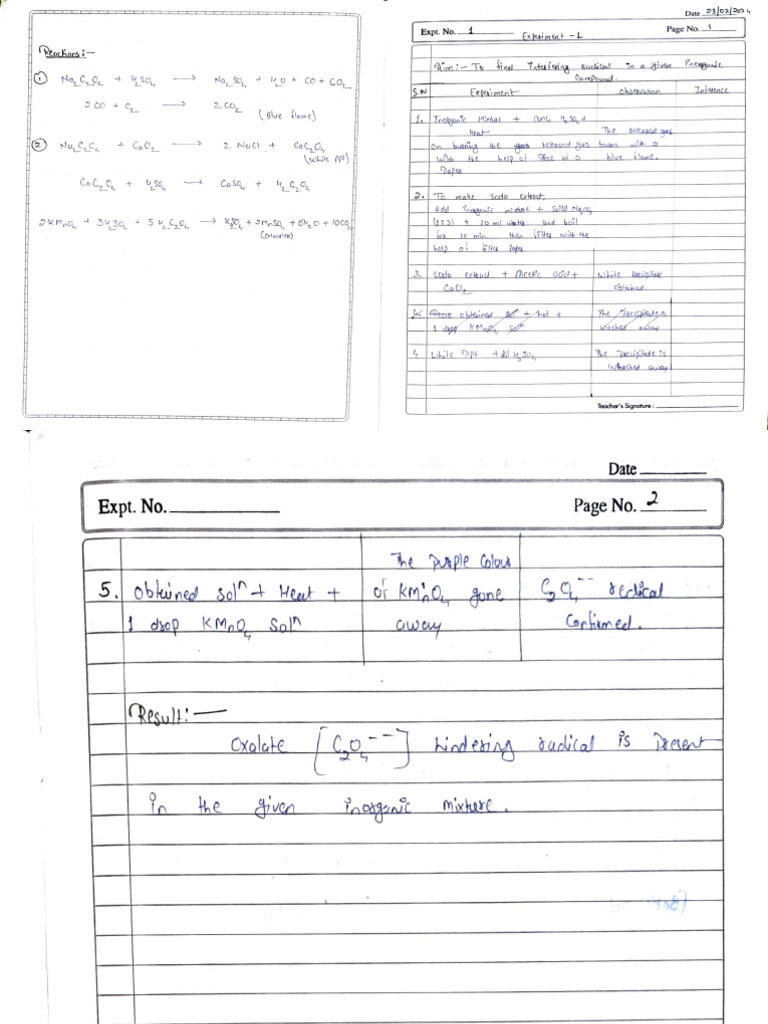 Reactions:-
① Na₂C₂O₄ + H₂SO₄ → Na₂SO₄ + H₂O + CO + CO₂
2CO + O₂ → 2CO₂
(Blue flame)
② Na₂C₂O₄ + CaCl₂ → 2 NaCl + CaC₂O₄
(White PPt)
CaC₂O₄ + H₂SO₄ → CaSO₄ + H₂C₂O₄
2KMnO₄ + 3H₂SO₄ + 5H₂C₂O₄ → K₂SO₄ + 2MnSO₄ + 8H₂O + 10CO₂
Date 23/02/2024
Expt. No. 1
Experiment -1
Page No. 1
Aim:- To find interfering radical in a given inorganic
compound.
S.N Expeiment Observation Inference
1. Inorganic Mixture + Conc H₂SO₄ +
Heat The released gas
on burning the gas released gas burns with a
with the help of piece of a blue flame.
Paper
2. To make soda extract.
Add inorganic mixture + Solid Na₂CO₃
(1:3) + 10 ml water and boil
for 10 min then filter with the
help of filter paper
3. Soda extract + Acetic acid + White precipitate
CaCl₂ obtained.
Above obtained solⁿ + hot + The precipitate is
1 drop KMnO₄ Solⁿ washed away
4. White PPt + dil H₂SO₄ The precipitate is
Washed away
Teacher's Signature :
Date
Expt. No.
Page No. 2
The purple Colour
5. Obtained solⁿ + Heat + of KMnO₄ gone C₂O₄⁻⁻ radical
1 drop KMnO₄ Solⁿ away Confirmed.
Result:—
Oxalate [C₂O₄⁻⁻] hindering radical is present
in the given inorganic mixture.